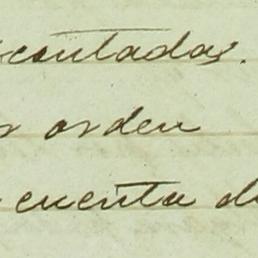 contadas.
orden
cuenta d